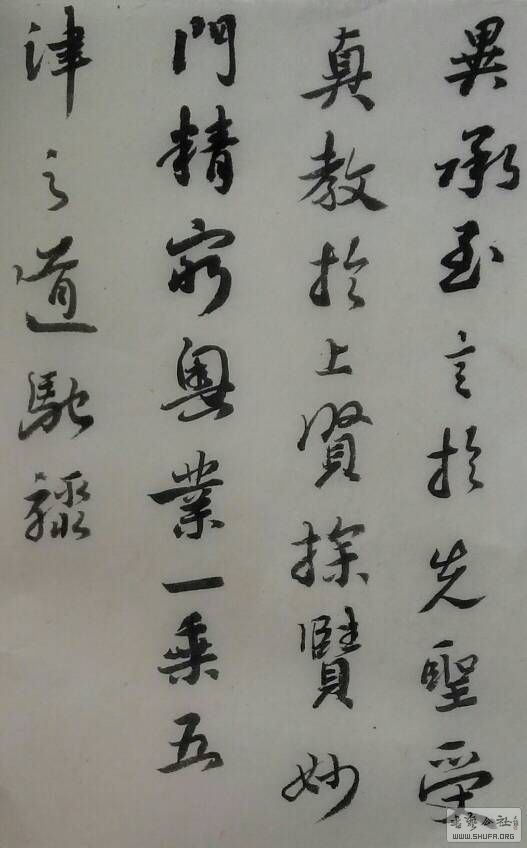 異承至言於先聖受
真教於上賢探賾妙
門精窮奧業一乘五
津之道馳驟
书艺公社
WWW.SHUFA.ORG